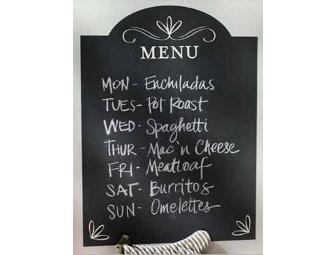 MENU
MON - Enchiladas
TUES - Pot Roast
WED - Spaghetti
THUR - Mac 'n Cheese
FRI - Meatloaf
SAT - Burritos
SUN - Omelettes